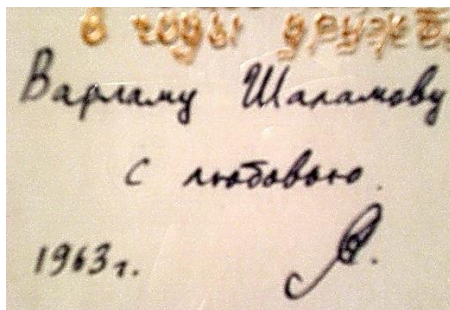 в годы дружб
Варламу Шаламову
с любовью.
1963 г.